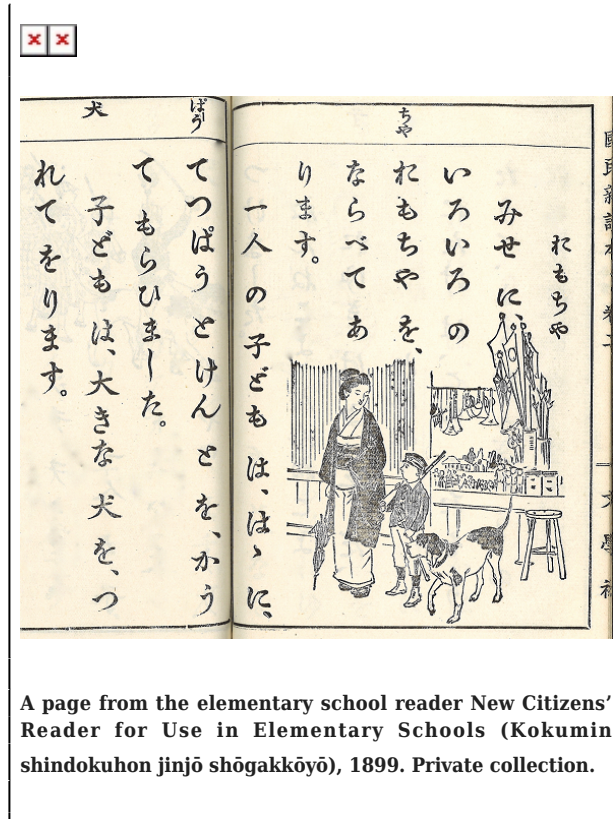 ちや
おもちや
みせに、
いろいろ の
おもちや を、
ならべて あ
ります。
一人 の 子ども は、はゝ に、
ぱう
てつぱう と けん と を、かう
て もらひました。
犬
子ども は、大きな 犬 を、つ
れて をります。
A page from the elementary school reader New Citizens’
Reader for Use in Elementary Schools (Kokumin
shindokuhon jinjō shōgakkōyō), 1899. Private collection.